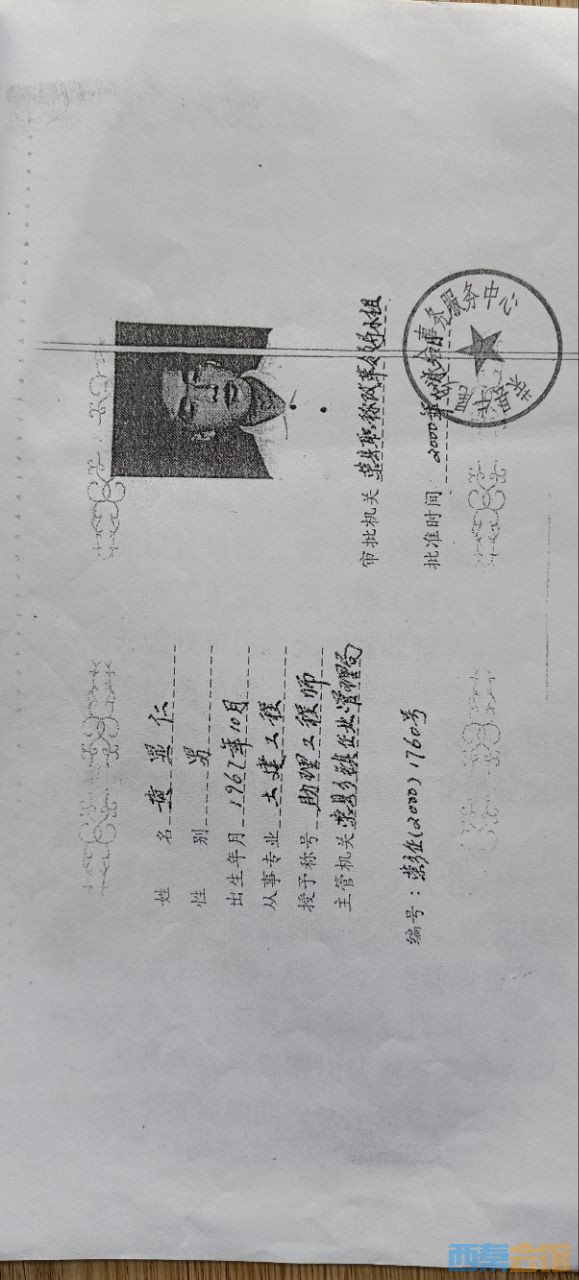 姓 名 黄显仁
性 别 男
出生年月 1967年10月
从事专业 土建工程
授予称号 助理工程师
主管机关 荣县乡镇企业管理局
编号：荣乡企(2000)1760号
审批机关 荣县职称改革领导小组
批准时间: 2000年
事务服务中心
西秦会馆